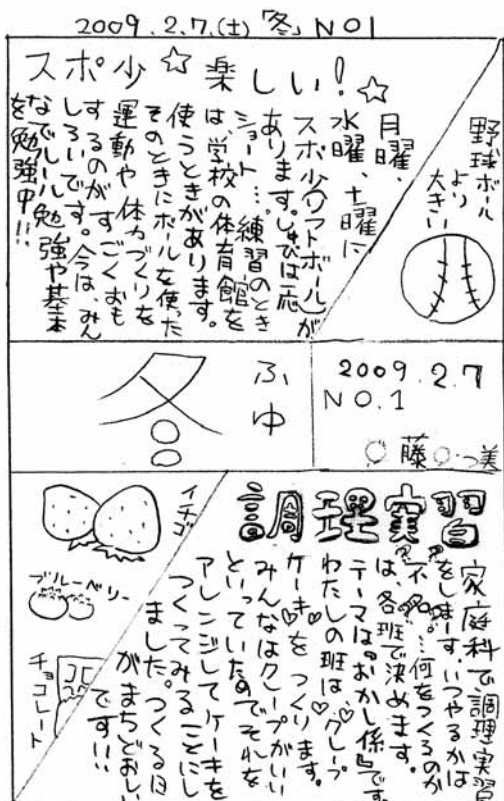 2009.2.7.(土)「冬」NO1
スポ少☆楽しい!☆
月曜、
水曜、土曜に
スポ少(ソフトボール)が
あります。しゅびは一応
ショート…。練習のとき
は、学校の体育館を
使うときがあります。
そのときにボールを使った
運動や体力づくりを
するのがすごくおも
しろいです。今は、みん
なでルール勉強や基本
を勉強中!!
野球ボール
より
大きい
冬
ふゆ
2009.2.7
NO.1
○藤○っ美
調理実習
家庭科で調理実習
をしまーす。いつやるかは
不明?…何をつくるのか
は、各班で決めます。
テーマは『おかし係』です。
わたしの班は、♡クレープ
ケーキ♡をつくります。
みんなはクレープがいい
といっていたのでそれを
アレンジしてケーキを
つくってみることにし
ました。つくる日
がまちどおしい
です!!
イチゴ
ブルーベリー
チョコレート